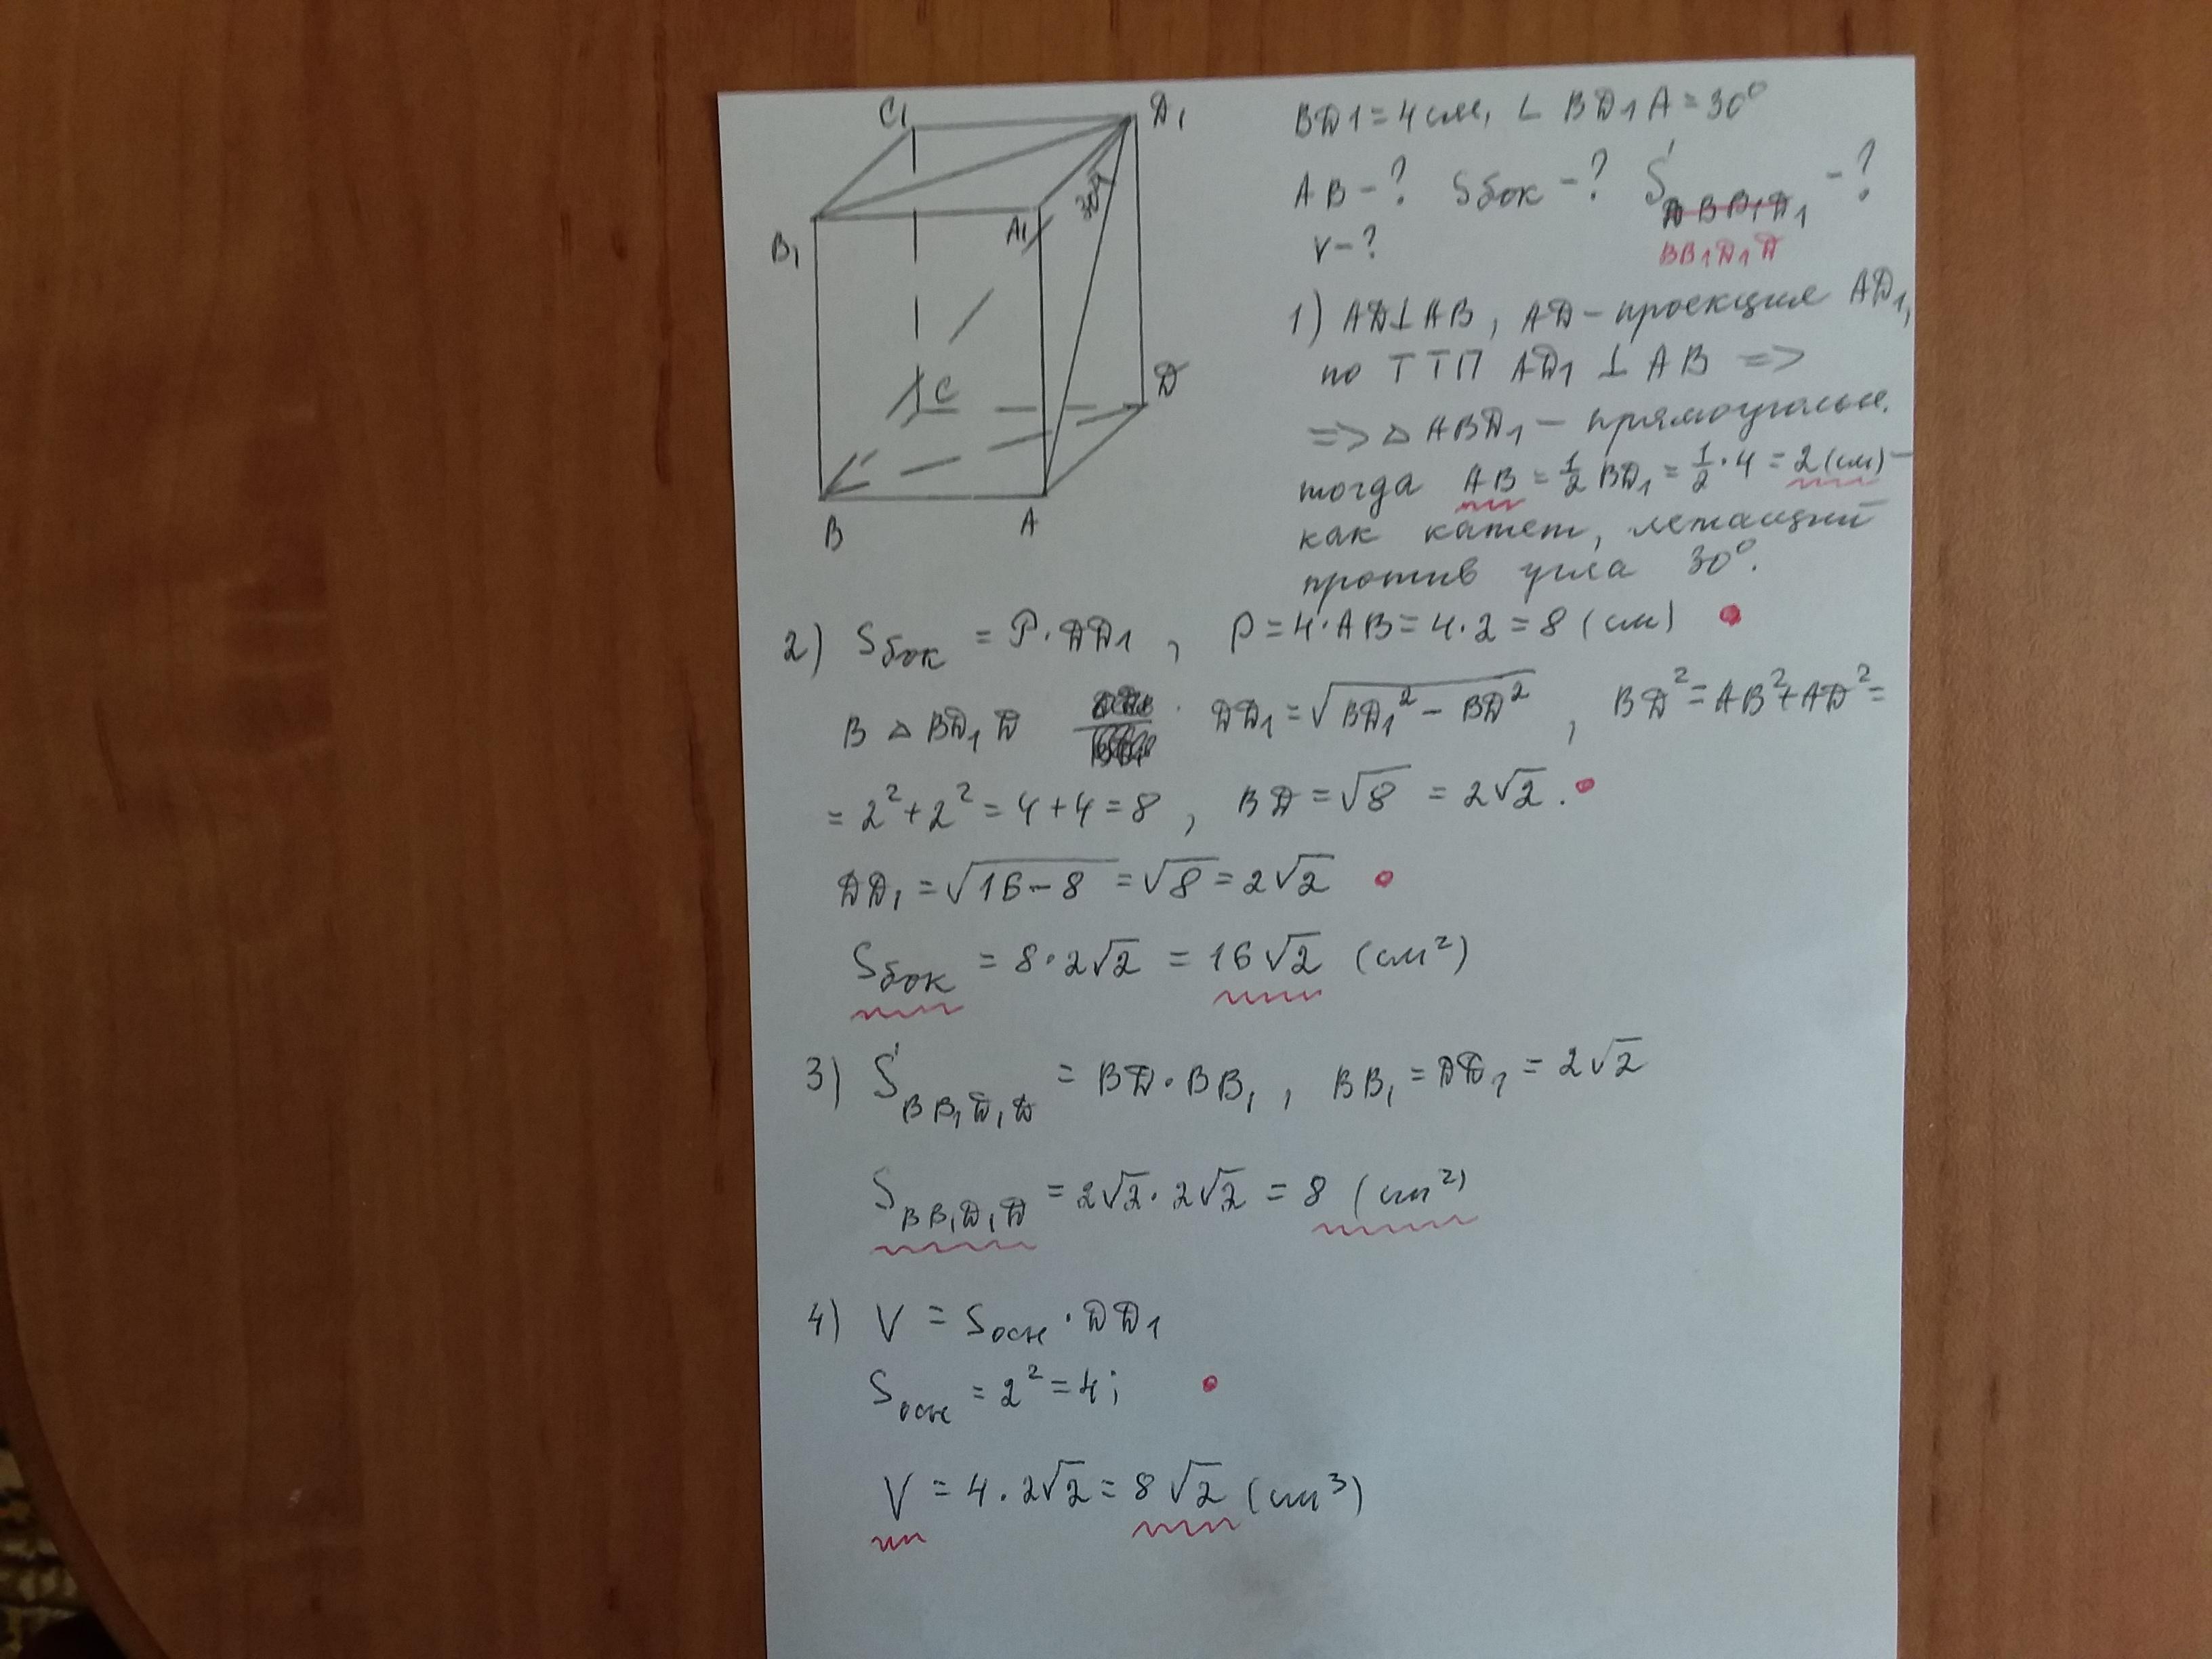 C₁
D₁
B₁
A₁
30°
C
D
B
A
BD1 = 4 см, ∠ BD1A = 30°
AB - ? Sбок - ? S - ?
BB₁D₁D
V - ?
1) AD⊥AB, AD - проекция AD₁,
по ТТП AD₁ ⊥ AB =>
=> △ ABD₁ - прямоугольн.
тогда AB = 1/2 BD₁ = 1/2 · 4 = 2 (см) -
как катет, лежащий
против угла 30°.
2) Sбок = P · DD1, P = 4·AB = 4·2 = 8 (см)
В △ BD₁D DD₁ = √(BD₁² - BD²), BD² = AB² + AD² =
= 2² + 2² = 4 + 4 = 8, BD = √8 = 2√2.
DD₁ = √(16 - 8) = √8 = 2√2
Sбок = 8·2√2 = 16√2 (см²)
3) S BB₁D₁D = BD·BB₁, BB₁ = DD₁ = 2√2
S BB₁D₁D = 2√2·2√2 = 8 (см²)
4) V = Sосн · DD1
Sосн = 2² = 4;
V = 4·2√2 = 8√2 (см³)